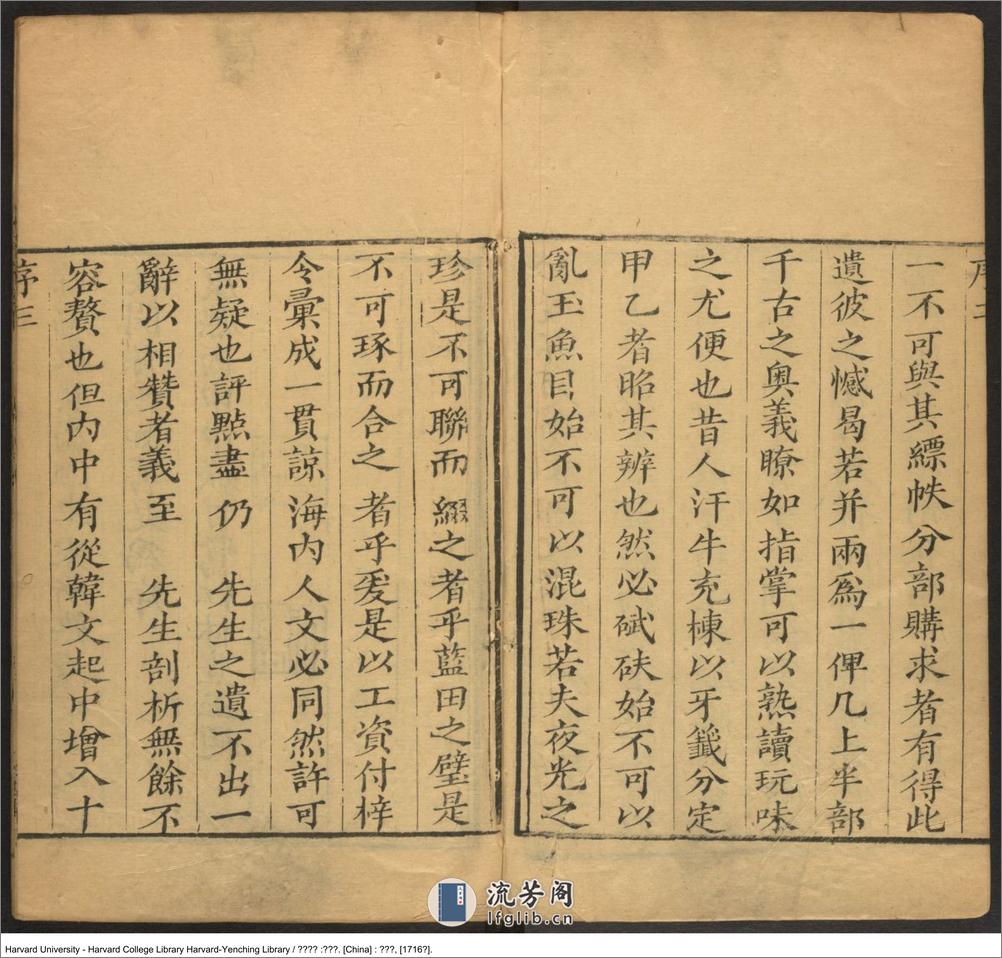 一不可與其縹帙分部購求者有得此
遺彼之憾曷若并兩爲一俾几上半部
千古之奥義瞭如指掌可以熟讀玩味
之尤便也昔人汗牛充棟以牙籤分定
甲乙者昭其辨也然必碔砆始不可以
亂玉魚目始不可以混珠若夫夜光之
珍是不可聯而綴之者乎藍田之璧是
不可琢而合之者乎爰是以工資付梓
令彙成一貫諒海内人文必同然許可
無疑也評點盡仍 先生之遺不出一
辭以相贊者義至 先生剖析無餘不
容贅也但内中有從韓文起中增入十
序三
流芳阁
lfglib.cn
Harvard University - Harvard College Library Harvard-Yenching Library / ???? :???. [China] : ???, [1716?].